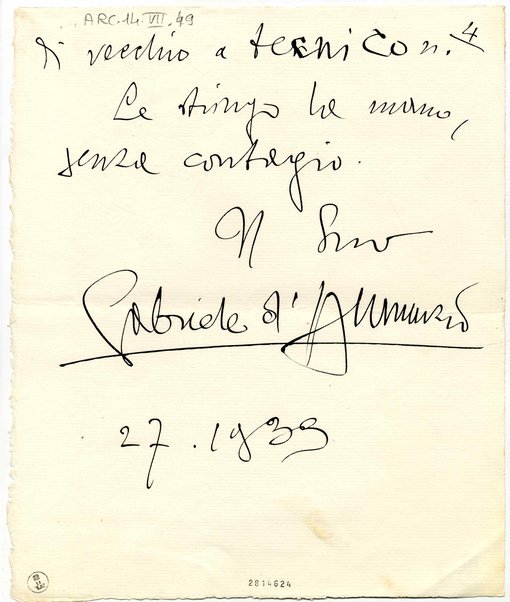 ARC.14.VII.49
4
di vecchio a tecnicon.
Le stringo la mano,
senza contagio.
Il Suo
Gabriele d'Annunzio
27.1933
2814624